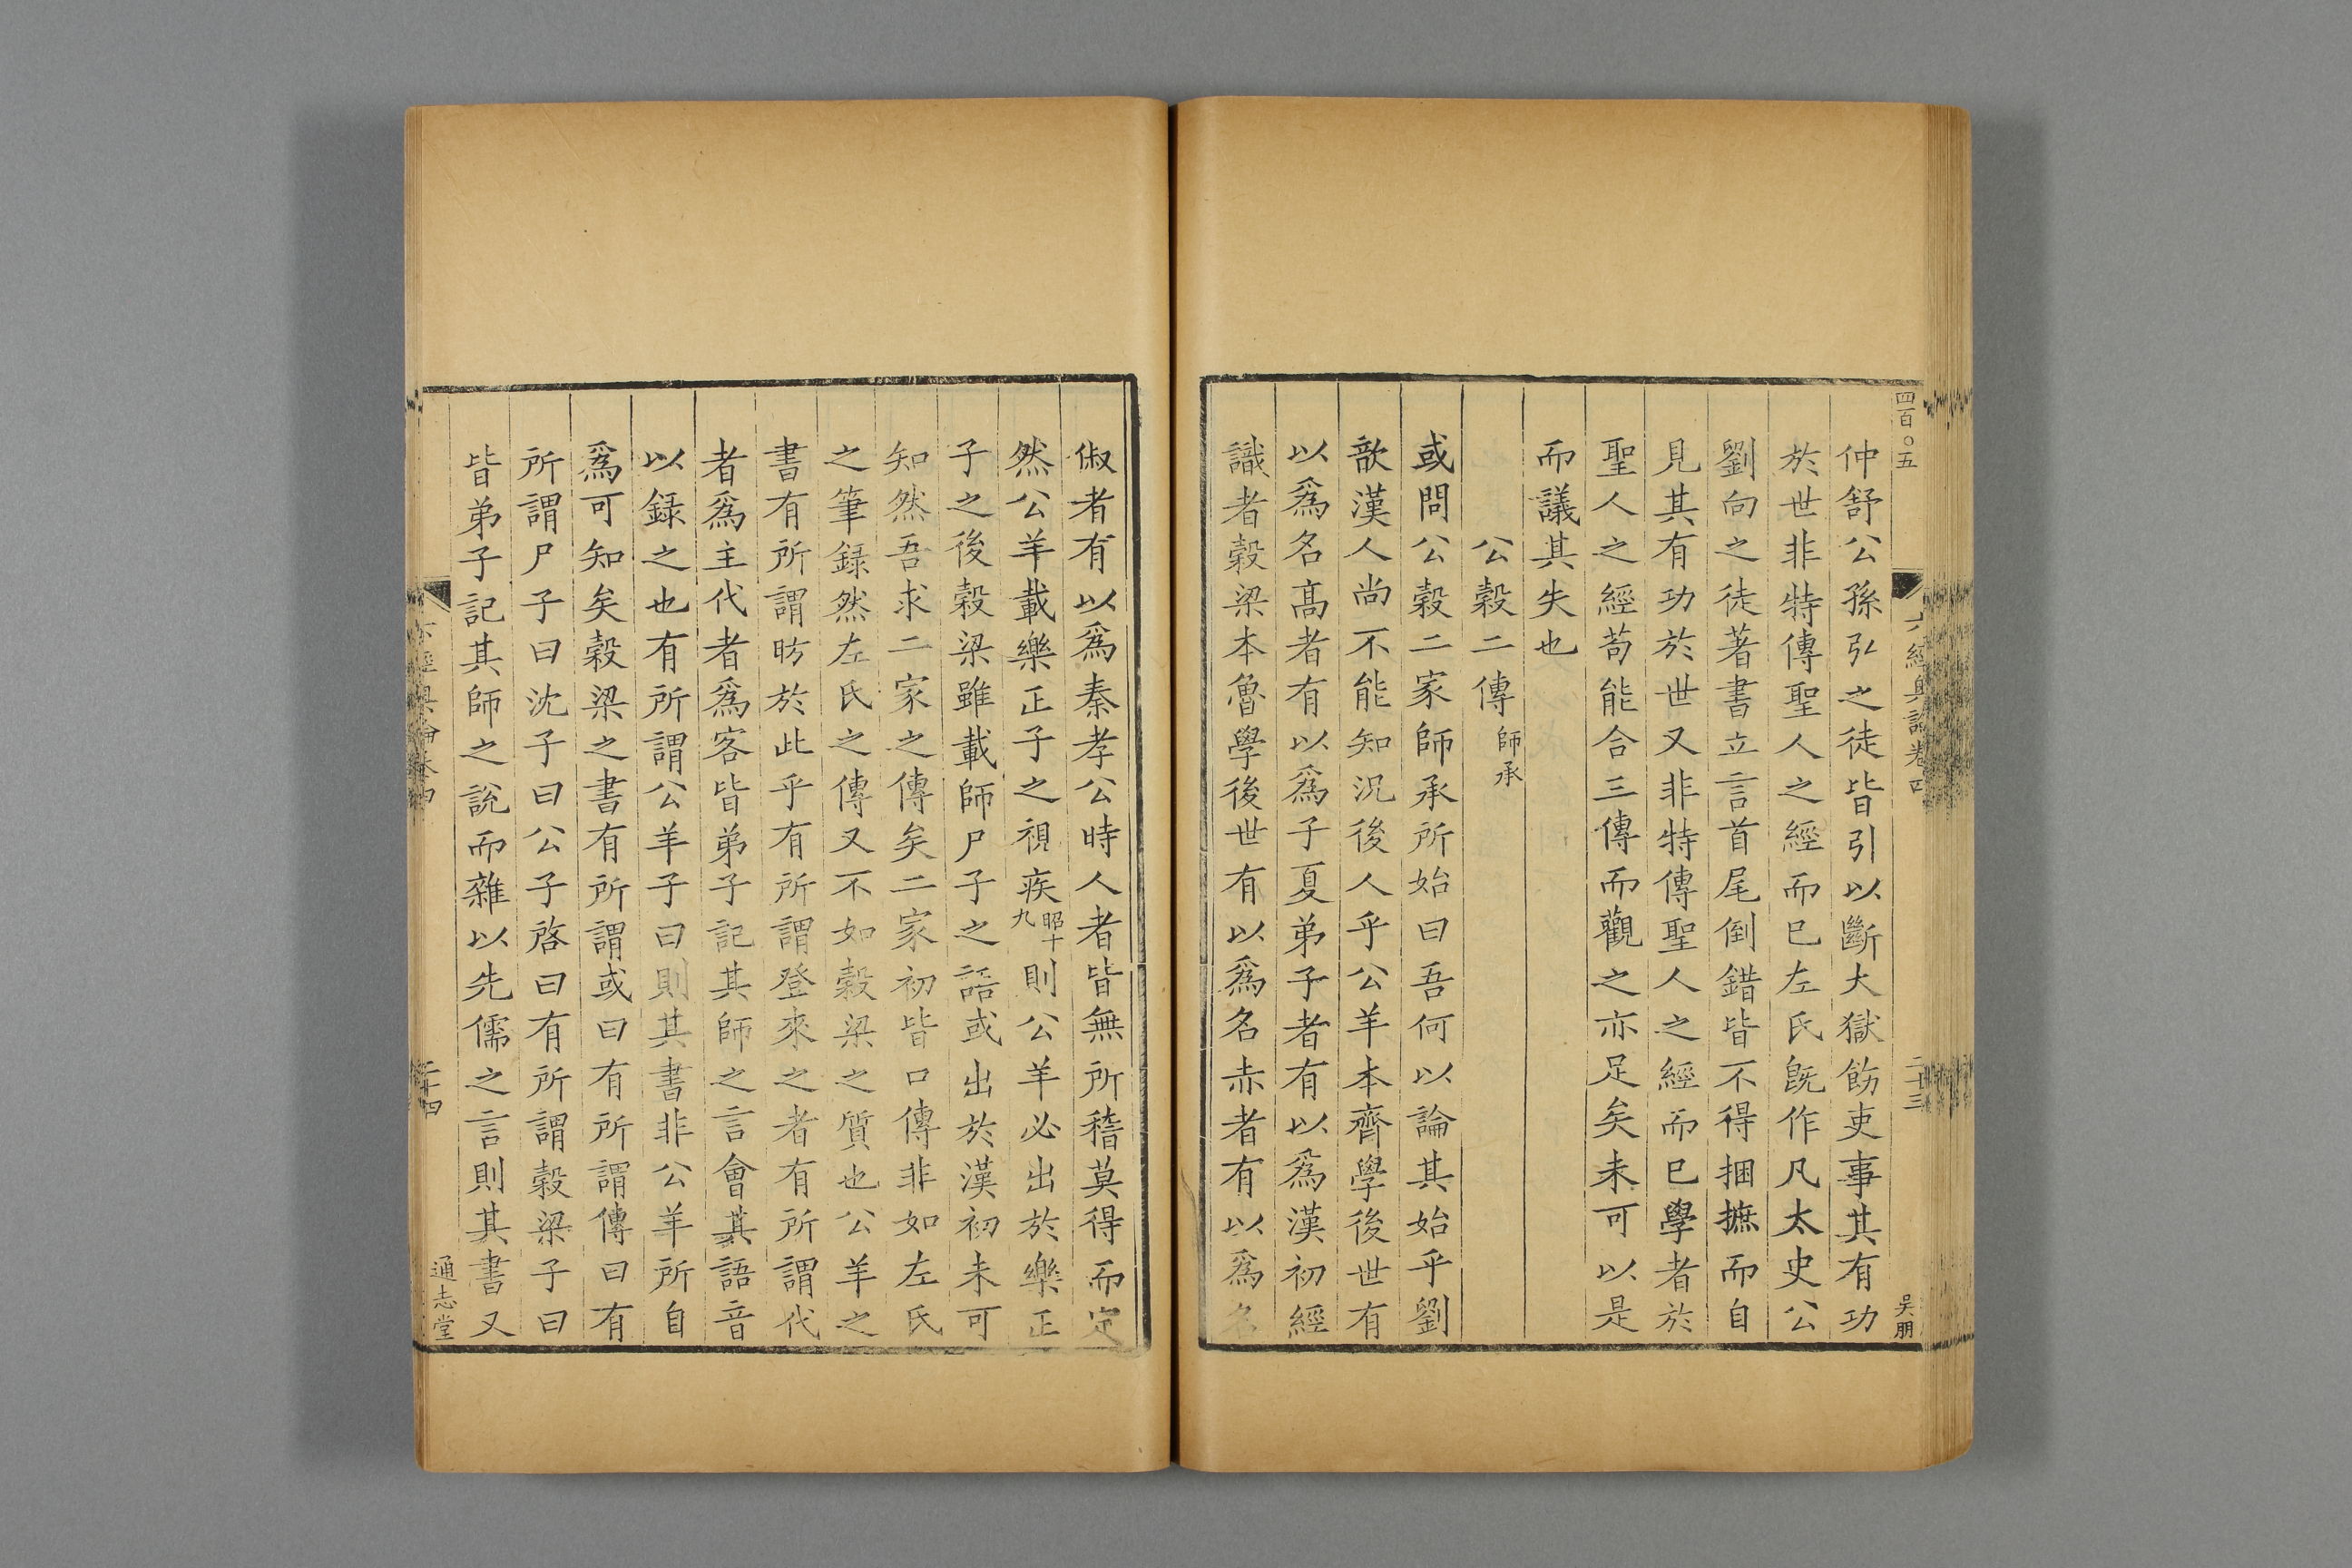 四百〇五
六經奧論卷四
二十三
吴朋
仲舒公孫弘之徒皆引以斷大獄飭吏事其有功
於世非特傳聖人之經而已左氏旣作凡太史公
劉向之徒著書立言首尾倒錯皆不得捆摭而自
見其有功於世又非特傳聖人之經而已學者於
聖人之經苟能合三傳而觀之亦足矣未可以是
而議其失也
公榖二傳師承
或問公榖二家師承所始曰吾何以論其始乎劉
歆漢人尚不能知況後人乎公羊本齊學後世有
以爲名髙者有以爲子夏弟子者有以爲漢初經
識者榖梁本魯學後世有以爲名赤者有以爲名
俶者有以爲秦孝公時人者皆無所稽莫得而定
然公羊載樂正子之視疾昭十九則公羊必出於樂正
子之後榖梁雖載師尸子之語或出於漢初未可
知然吾求二家之傳矣二家初皆口傳非如左氏
之筆録然左氏之傳又不如榖梁之質也公羊之
書有所謂昉於此乎有所謂登來之者有所謂代
者爲主代者爲客皆弟子記其師之言會其語音
以録之也有所謂公羊子曰則其書非公羊所自
爲可知矣榖梁之書有所謂或曰有所謂傳曰有
所謂尸子曰沈子曰公子啓曰有所謂榖梁子曰
皆弟子記其師之說而雜以先儒之言則其書又
六經奧論卷四
二十四
通志堂